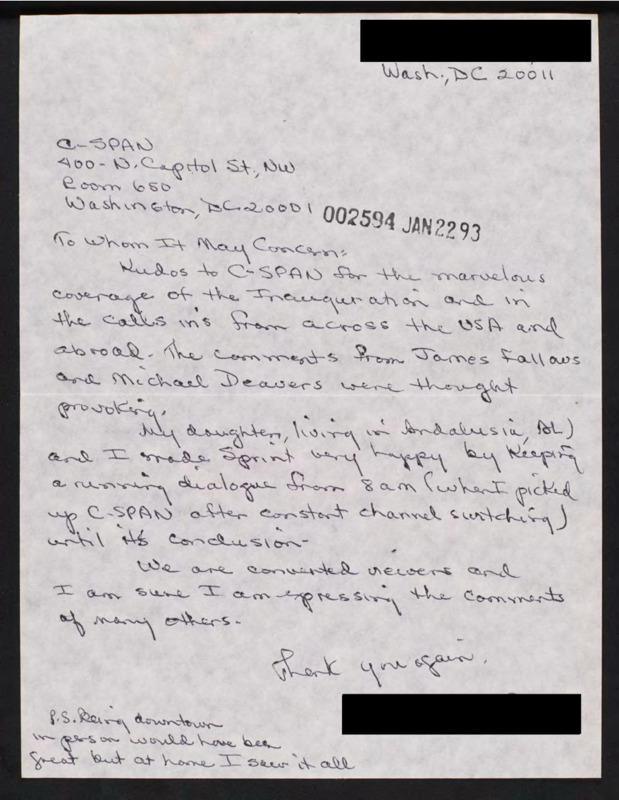 Wash., DC 20011
C-SPAN
400- N. Capitol St, NW
Room 650
Washington, DC 20001
002594 JAN 22 93
To Whom It May Concern:
Kudos to C-SPAN for the marvelous
coverage of the Inauguration and in
the calls in's from across the USA and
abroad. The comments from James Fallows
and Michael Deavers were thought
provoking.
My daughter, living in Andalusia, AL)
and I made Sprint very happy by keeping
a running dialogue from 8 am (when I picked
up C-SPAN after constant channel switching)
until its conclusion-
We are converted viewers and
I am sure I am expressing the comments
of many others.
Thank you again.
P.S. Being downtown
in person would have been
great but at home I saw it all